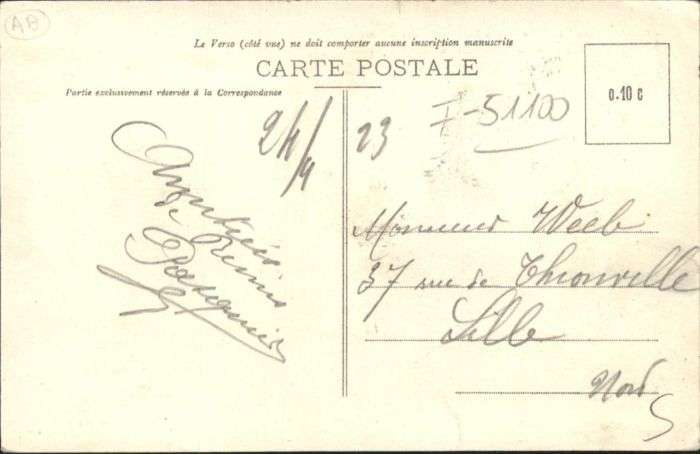 AB
Le Verso (côté vue) ne doit comporter aucune inscription manuscrite
CARTE POSTALE
Partie exclusivement réservée à la Correspondance
0.10 c
I-51100
24/4 23
de Reims
Monsieur Weeb
37 rue de Thionville
Lille
Nord